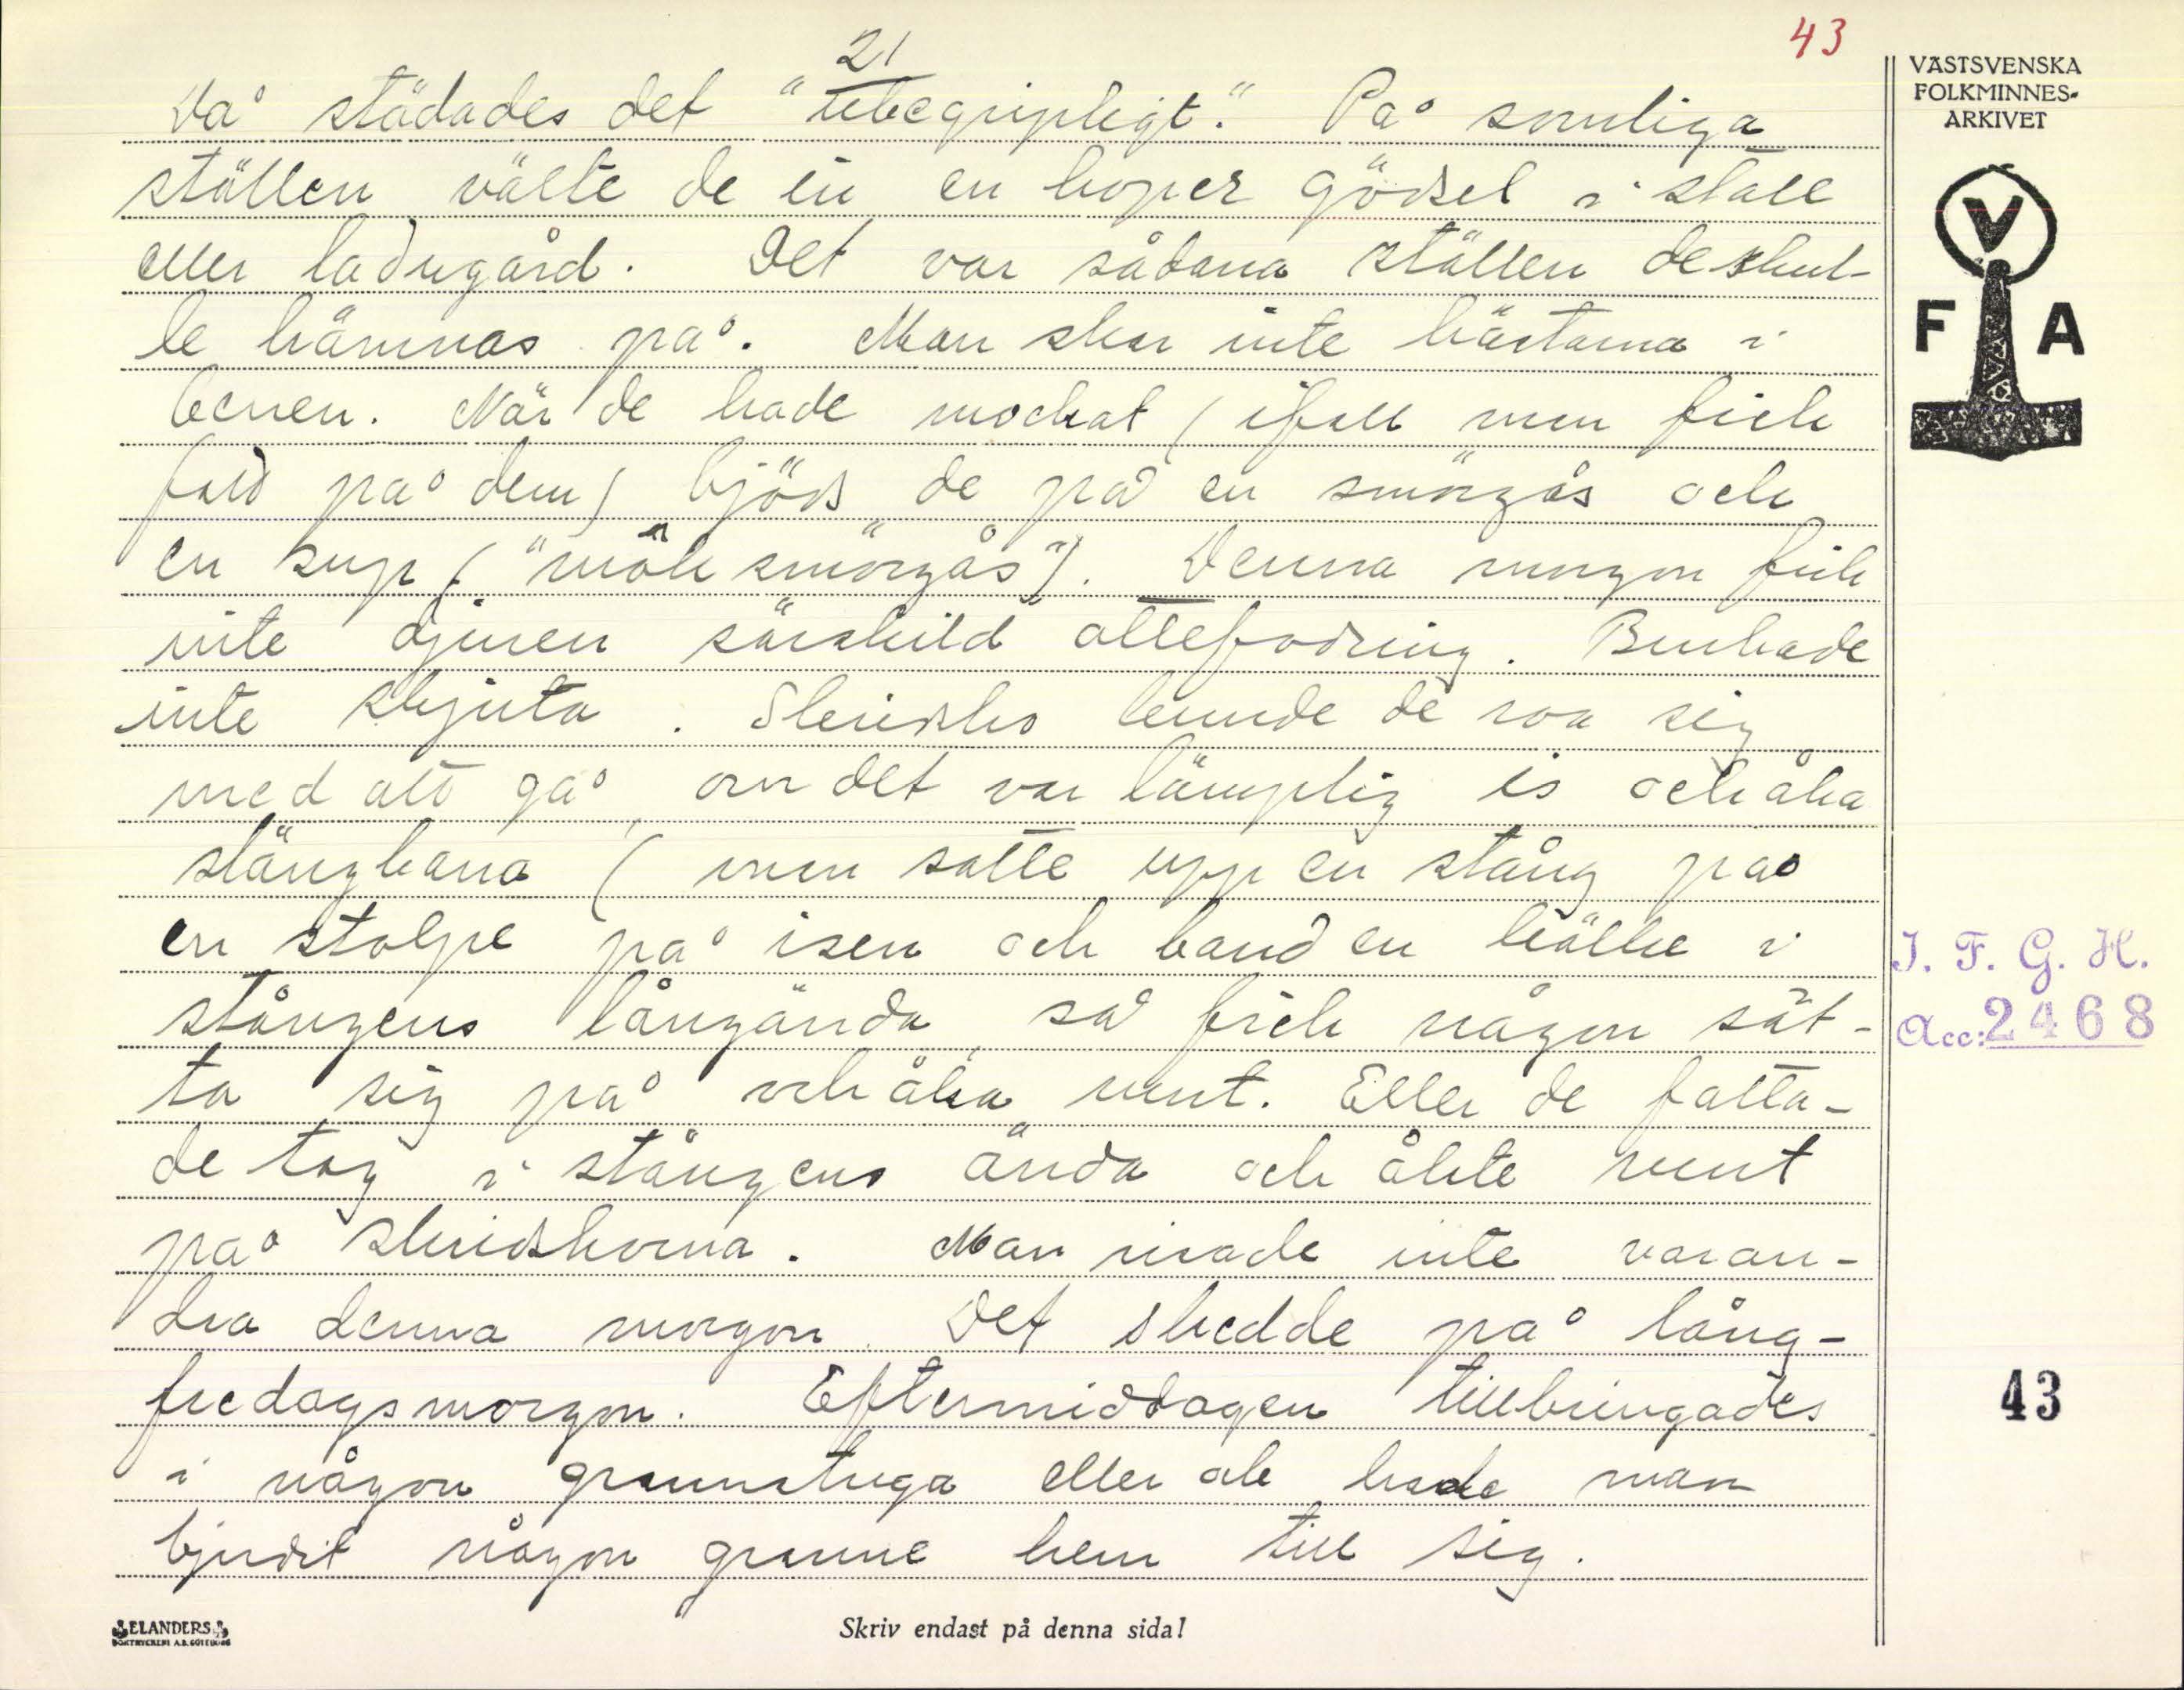 43
21
Då städades det "obegripligt." På somliga
ställen välte de in en hoper gödsel i stall
eller ladugård. Det var sådana ställen de skul-
le hämnas på. Man skar inte hästarna i
benen. När de hade mockat (ifall man fick
fast på dem) bjöds de på en smörgås och
en sup ("mök smörgås"). Denna morgon fick
inte djuren särskild ottefodring. Brukade
inte skjuta. Skridsko kunde de roa sig
med att gå, om det var lämplig is och åka
slängkana (man satte upp en stång på
en stolpe på isen och band en kälke i
stångens långända, så fick någon sät-
ta sig på och åka runt. Eller de fatta-
de tag i stångens ända och åkte runt
på skridskorna. Man risade inte varan-
dra denna morgon. Det skedde på lång-
fredagsmorgon. Eftermiddagen tillbringades
i någon grannstuga eller ock hade man
bjudit någon granne hem till sig.
VÄSTSVENSKA
FOLKMINNES-
ARKIVET
V
F A
I. F. G. H.
Acc: 2468
43
ELANDERS
BOKTRYCKERI A.B. GÖTEBORG
Skriv endast på denna sida!